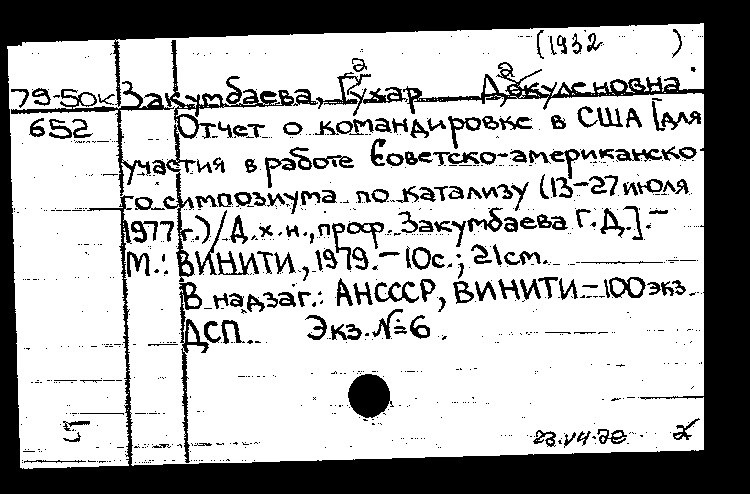 (1932 )
79-50к Закумбаева, Гаухар Даукуленовна.
652 Отчет о командировке в США [для
участия в работе Советско-американско-
го симпозиума по катализу (13-27 июля
1977 г.)/Д.х.н., проф. Закумбаева Г.Д.].-
М.: ВИНИТИ, 1979.-10с.; 21см.
В надзаг.: АНСССР, ВИНИТИ-100экз
ДСП. Экз.№6.
5